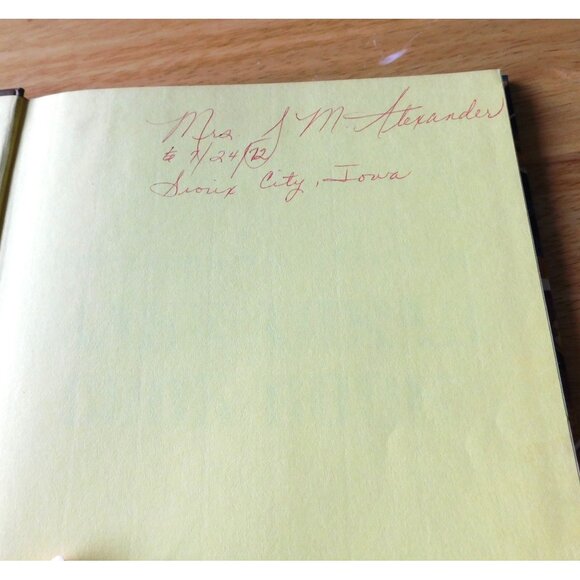 Mrs. J M Alexander
7/24/72
Sioux City, Iowa